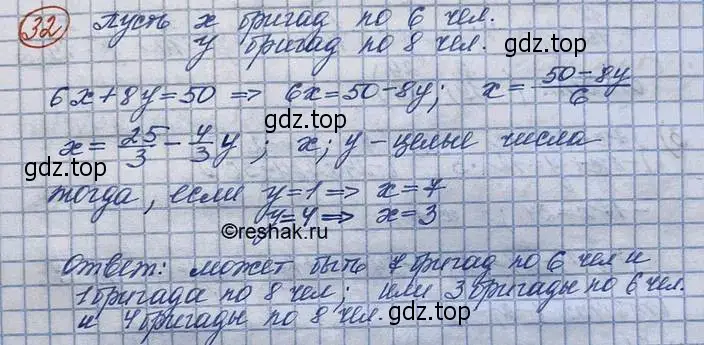 32 Пусть x бригад по 6 чел.
y бригад по 8 чел.
gdz.top gdz.top
6x+8y=50 ⇒ 6x=50-8y; x= 50-8y/6
gdz.top
x= 25/3 - 4/3 y; x; y - целые числа
тогда, если y=1 ⇒ x=7
y=4 ⇒ x=3
gdz.top gdz.top
©reshak.ru
Ответ: может быть 7 бригад по 6 чел и
1 бригада по 8 чел; или 3 бригады по 6 чел.
и 4 бригады по 8 чел.
gdz.top gdz.top